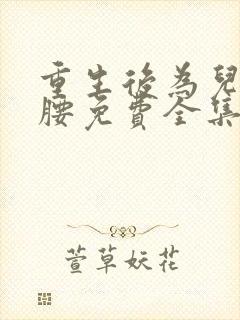 重生後為兒
腰免費全集
萱草妖花